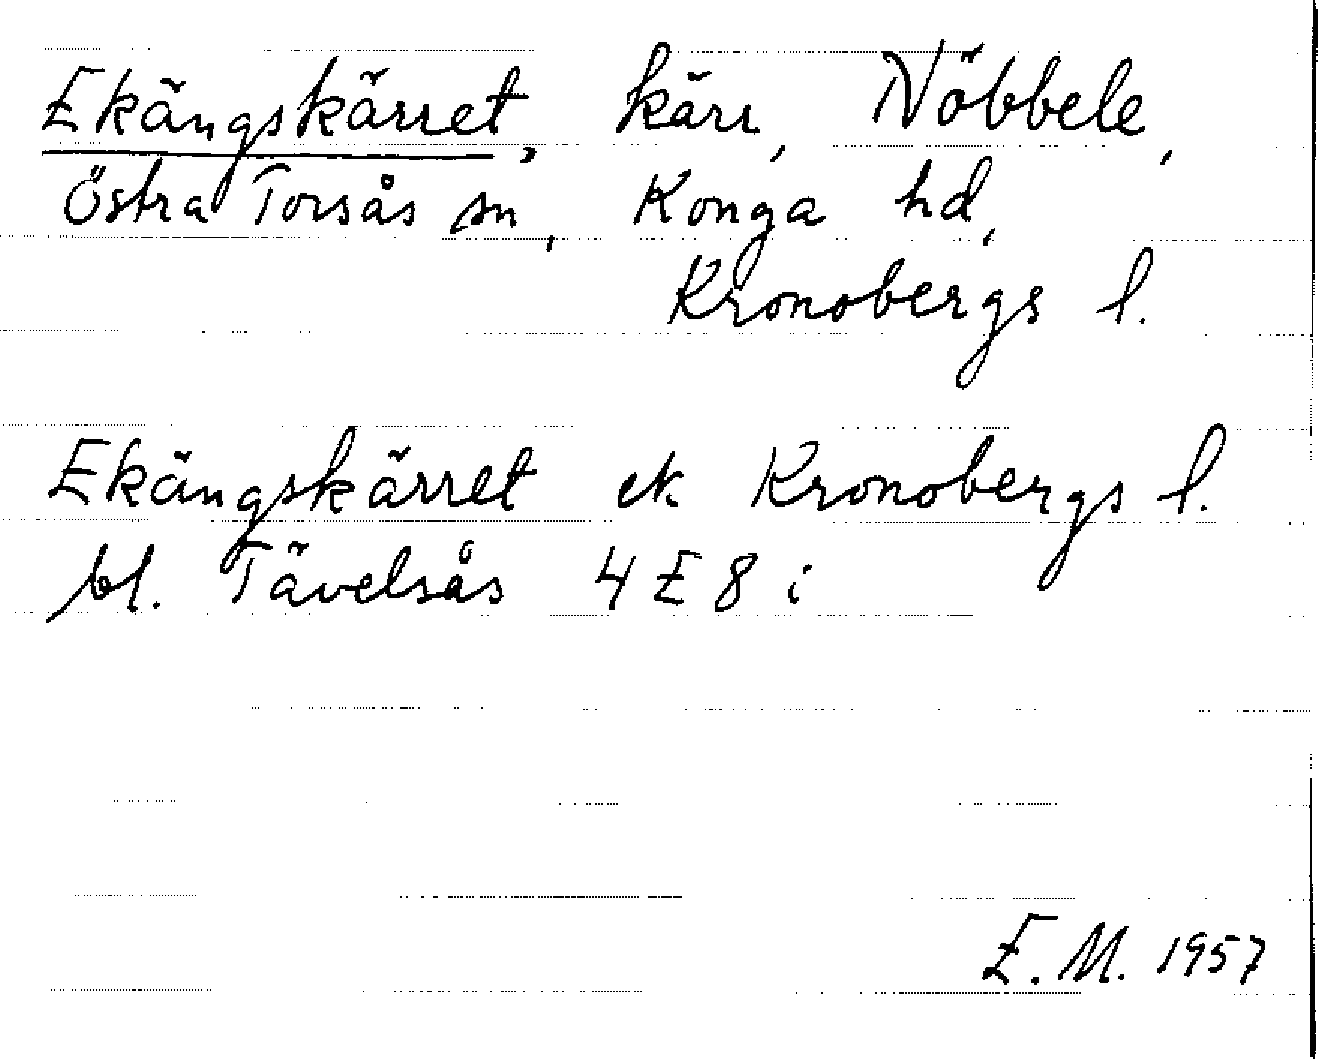 Ekängskärret, kärr, Nöbbele,
Östra Torsås sn, Konga hd,
Kronobergs l.
Ekängskärret ek Kronobergs l.
bl. Tävelsås 4 E 8 i
E.M. 1957